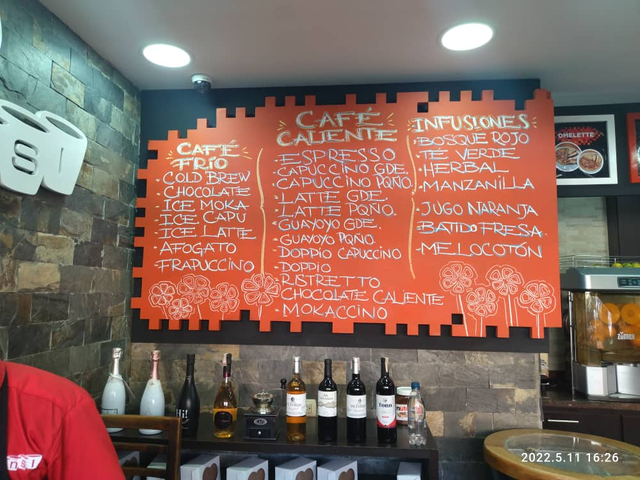 CAFÉ
FRÍO
COLD BREW
CHOCOLATE
ICE MOKA
ICE CAPU
ICE LATTE
AFOGATO
FRAPUCCINO
CAFÉ
CALIENTE
ESPRESSO
CAPUCCINO GDE.
CAPUCCINO PQÑO.
LATTE GDE.
LATTE PQÑO.
GUAYOYO GDE.
GUAYOYO PQÑO.
DOPPIO CAPUCCINO
DOPPIO
RISTRETTO
CHOCOLATE CALIENTE
MOKACCINO
INFUSIONES
BOSQUE ROJO
TÉ VERDE
HERBAL
MANZANILLA
JUGO NARANJA
BATIDO FRESA
MELOCOTÓN
OMELETTE
SI
2022.5.11 16:26